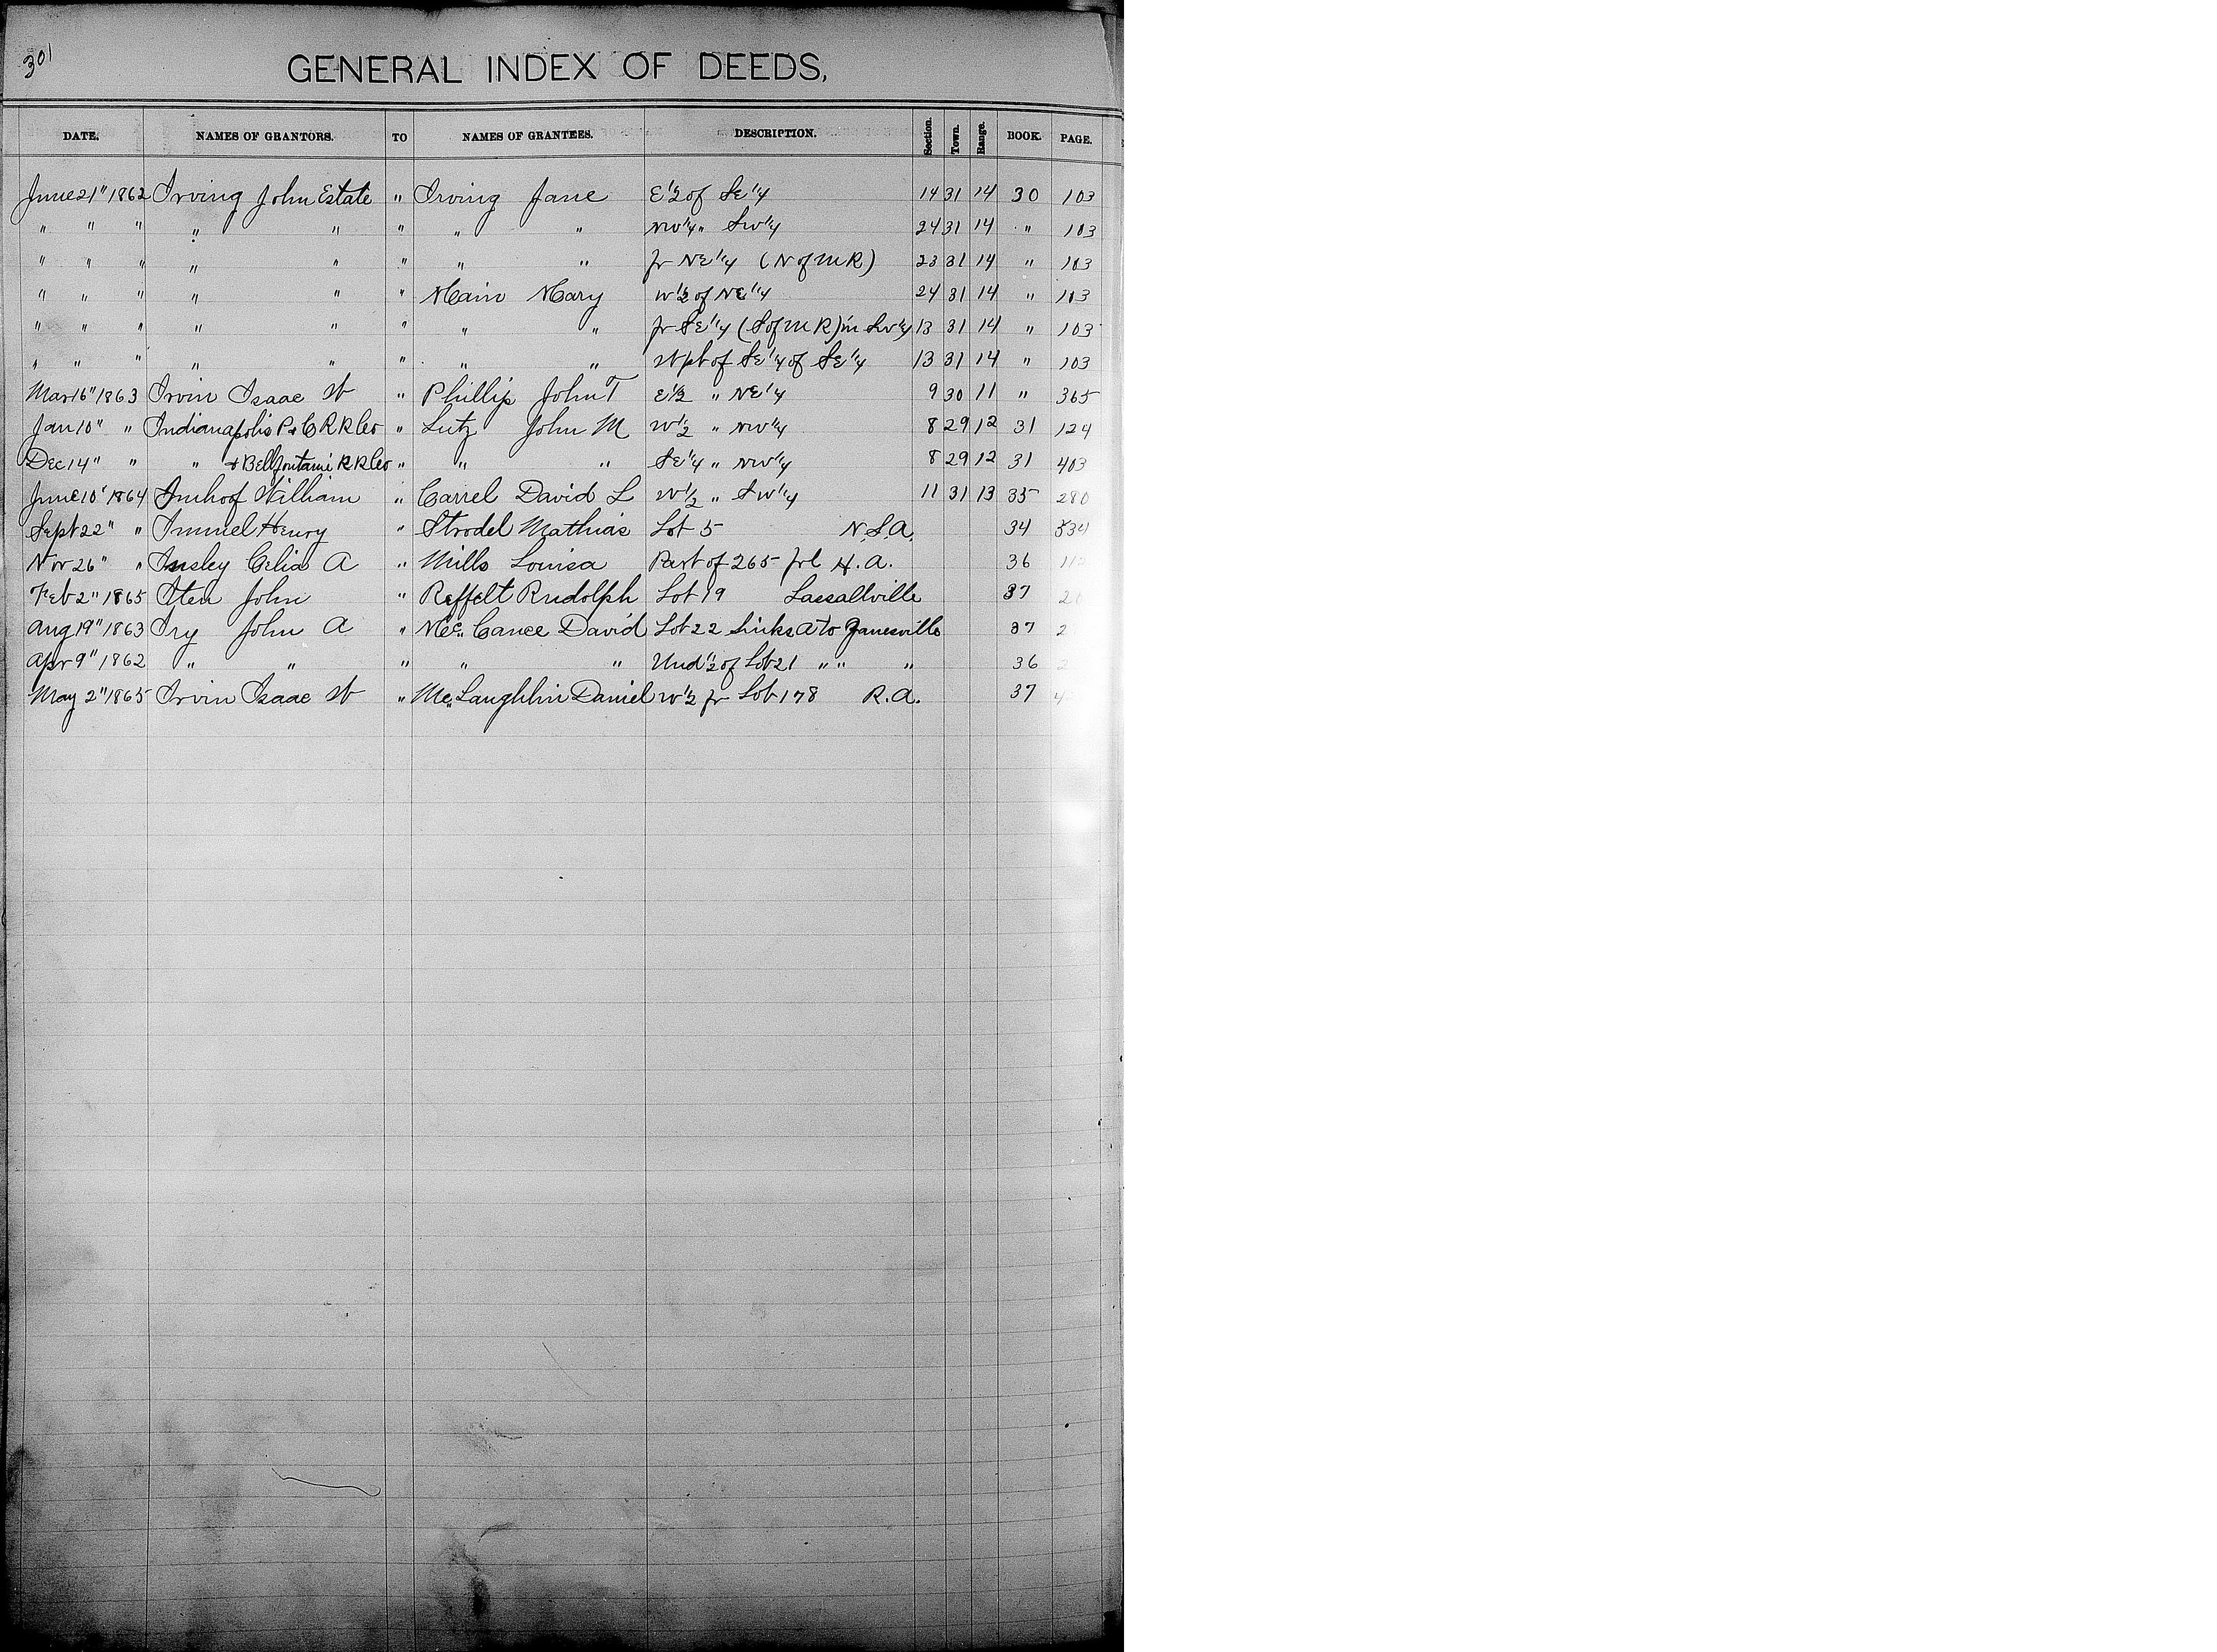 301
GENERAL INDEX OF DEEDS,
DATE. NAMES OF GRANTORS. TO NAMES OF GRANTEES. DESCRIPTION. Section. Town. Range. BOOK. PAGE.
June 21" 1862 Irving John Estate " Irving Jane E 1/2 of SE 1/4 14 31 14 30 103
" " " " " " " " NW 1/4 " SW 1/4 24 31 14 " 103
" " " " " " " " fr NE 1/4 (N of M R) 23 31 14 " 103
" " " " " " Main Mary W 1/2 of NE 1/4 24 31 14 " 103
" " " " " " " " fr SE 1/4 (S of M R) in SW 1/4 13 31 14 " 103
" " " " " " " " W pt of SE 1/4 of SE 1/4 13 31 14 " 103
Mar 16" 1863 Irvin Isaac W " Phillip John T E 1/2 " NE 1/4 9 30 11 " 365
Jan 10" " Indianapolis P & C R R Co " Lutz John M W 1/2 " NW 1/4 8 29 12 31 124
Dec 14" " " & Bellfontaine R R Co " " " SE 1/4 " NW 1/4 8 29 12 31 403
June 10" 1864 Imhoof William " Carrel David L W 1/2 " SW 1/4 11 31 13 35 280
Sept 22" " Immel Henry " Strodel Mathias Lot 5 N.S.A. 34 534
Nov 26" " Insley Celia A " Mills Louisa Part of 265 frl H.A. 36
Feb 2" 1865 Iten John " Reffelt Rudolph Lot 19 Lassallville 37
Aug 19" 1863 Iry John A " Mc Cance David Lot 22 Links A to Zanesville 37
Apr 9" 1862 " " " " " Und 1/2 of Lot 21 " " " 36
May 2" 1865 Irvin Isaac W " Mc Laughlin Daniel W 1/2 fr Lot 178 R.A. 37